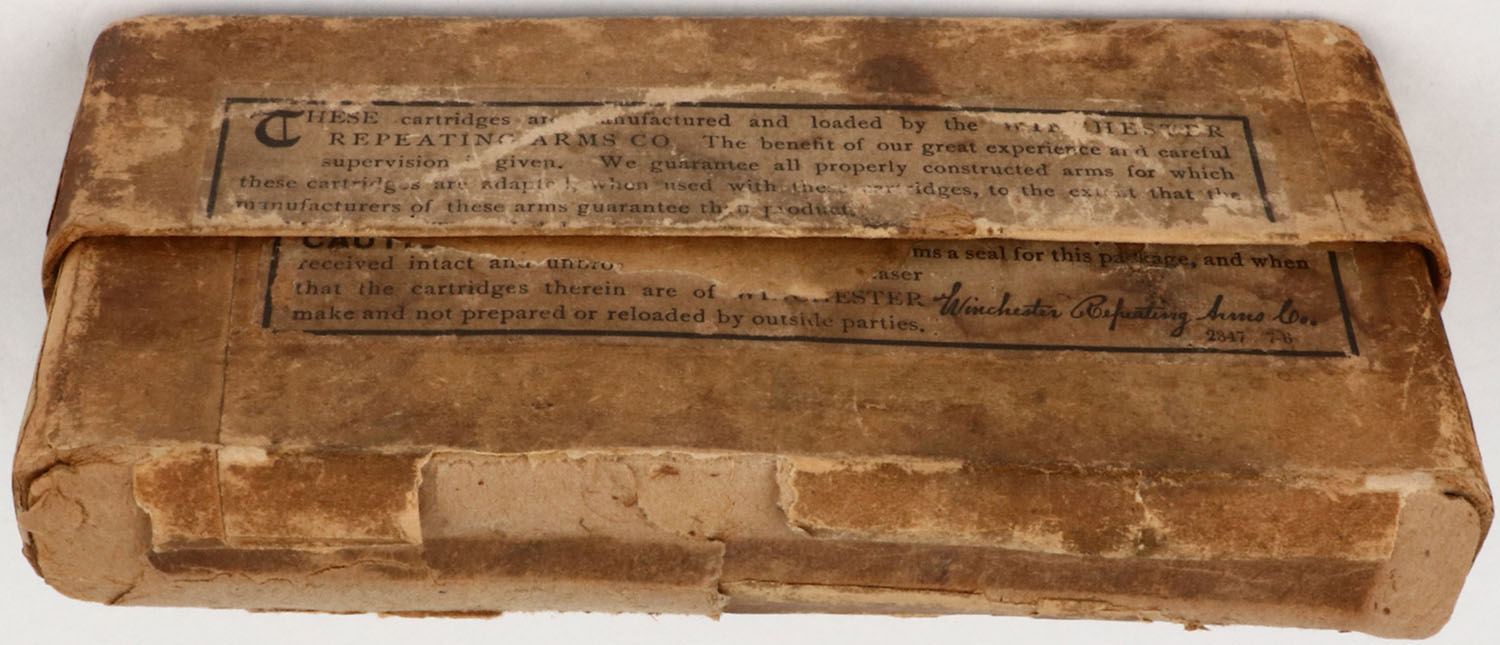 THESE cartridges are manufactured and loaded by the WINCHESTER
REPEATING ARMS CO. The benefit of our great experience and careful
supervision is given. We guarantee all properly constructed arms for which
these cartridges are adapted, when used with these cartridges, to the extent that the
manufacturers of these arms guarantee their product.
ms a seal for this package, and when
received intact and unbro
that the cartridges therein are of WINCHESTER
make and not prepared or reloaded by outside parties. Winchester Repeating Arms Co.
2347 7-6